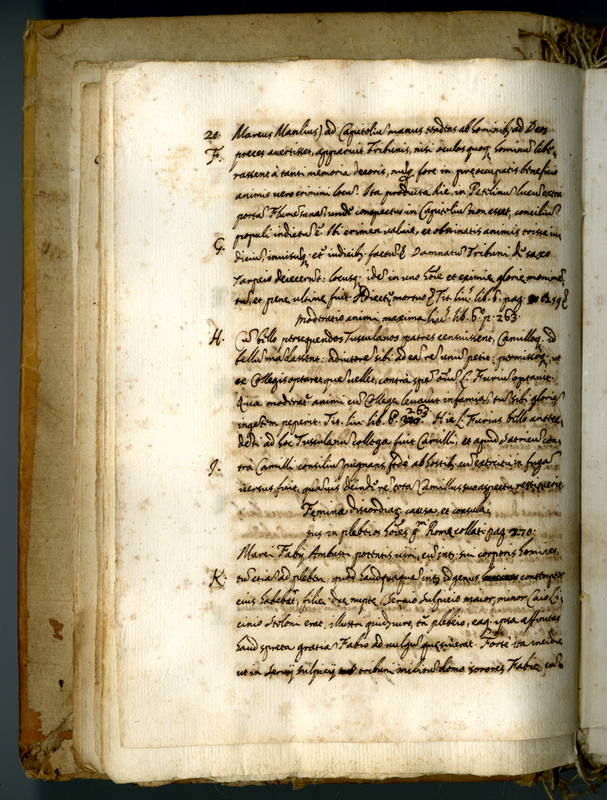 20. Marcus Manlius) ad Capitoliũ manus tendens ab hominibꝫ ad Deos
F. preces avertisset, apparuit Tribunis, nisi oculos quoqꝫ hominũ libe-
rassent à tanti memoria decoris, nunqꝫ fore in preoccupatis beneficio
animis vero crimini locũ. Ita producta die, in Petelinũ lucũ extra
portã Flumentanã, undè conspectus in Capitoliũ non esset, conciliũ
populi indictũ ẽ. Ibi crimen valuit, et obstinatis animis triste iu-
G. diciũ invisumqꝫ etiã iudicibꝫ factũ ẽ. Damnatũ Tribuni de saxo
Tarpeio deiecerunt: locusqꝫ idẽ in uno hoĩe et eximie glorie monumẽ
tũ, et pene ultime fuit. Tit. liu. lib. 6. pag. 259
moderatio animi maxima liu. lib. 6. p. 263.
H. Cũ bello persequendos Tusculanos patres censuissent, Camilloqꝫ id
bellũ mandassent: adiutorẽ sibi ad eã rẽ unũ petit; permissoqꝫ, ut
ex Collegis optaret quẽ vellet, contrà spẽ oĩum L. Furiũ optavit.
Qua moderatione animi cũ Collegę levavit infamiã, tũ sibi gloriã
ingentem peperit. Tit. liu. lib. 6. 263. Hic L. Furius bello antece-
denti ad hoc Tusculanũ collega fuit Camilli, et apud Satricũ con-
J. trà Camilli consiliũ pugnans, fedè ab hostibꝫ cũ exercitu in fugã
versus fuit, quamvis deindè rẽ totã Camillus suo aspectu restituerit.
Fęmina discordiaꝝ causa, et consula-
tus in plebeios hoĩes Romę collati. pag. 270.
Marci Fabij Ambusti potentis viri, cũ inter sui corporis homines,
K. tũ etiã ad plebem, quod haudquaquã inter id genus contemptor
eius habebãt, filię duę nuptę, Servio Sulpicio maior, minor Caio Li-
cinio Stoloni erat, illustri quidẽ viro, tñ plebeio, eaqꝫ ipsa affinitas
haud spreta gratiã Fabio ad vulgũ quęsiverat. Fortè ita incidit,
ut in Servij Sulpicij tribuni militũ domo sorores Fabię, cũ